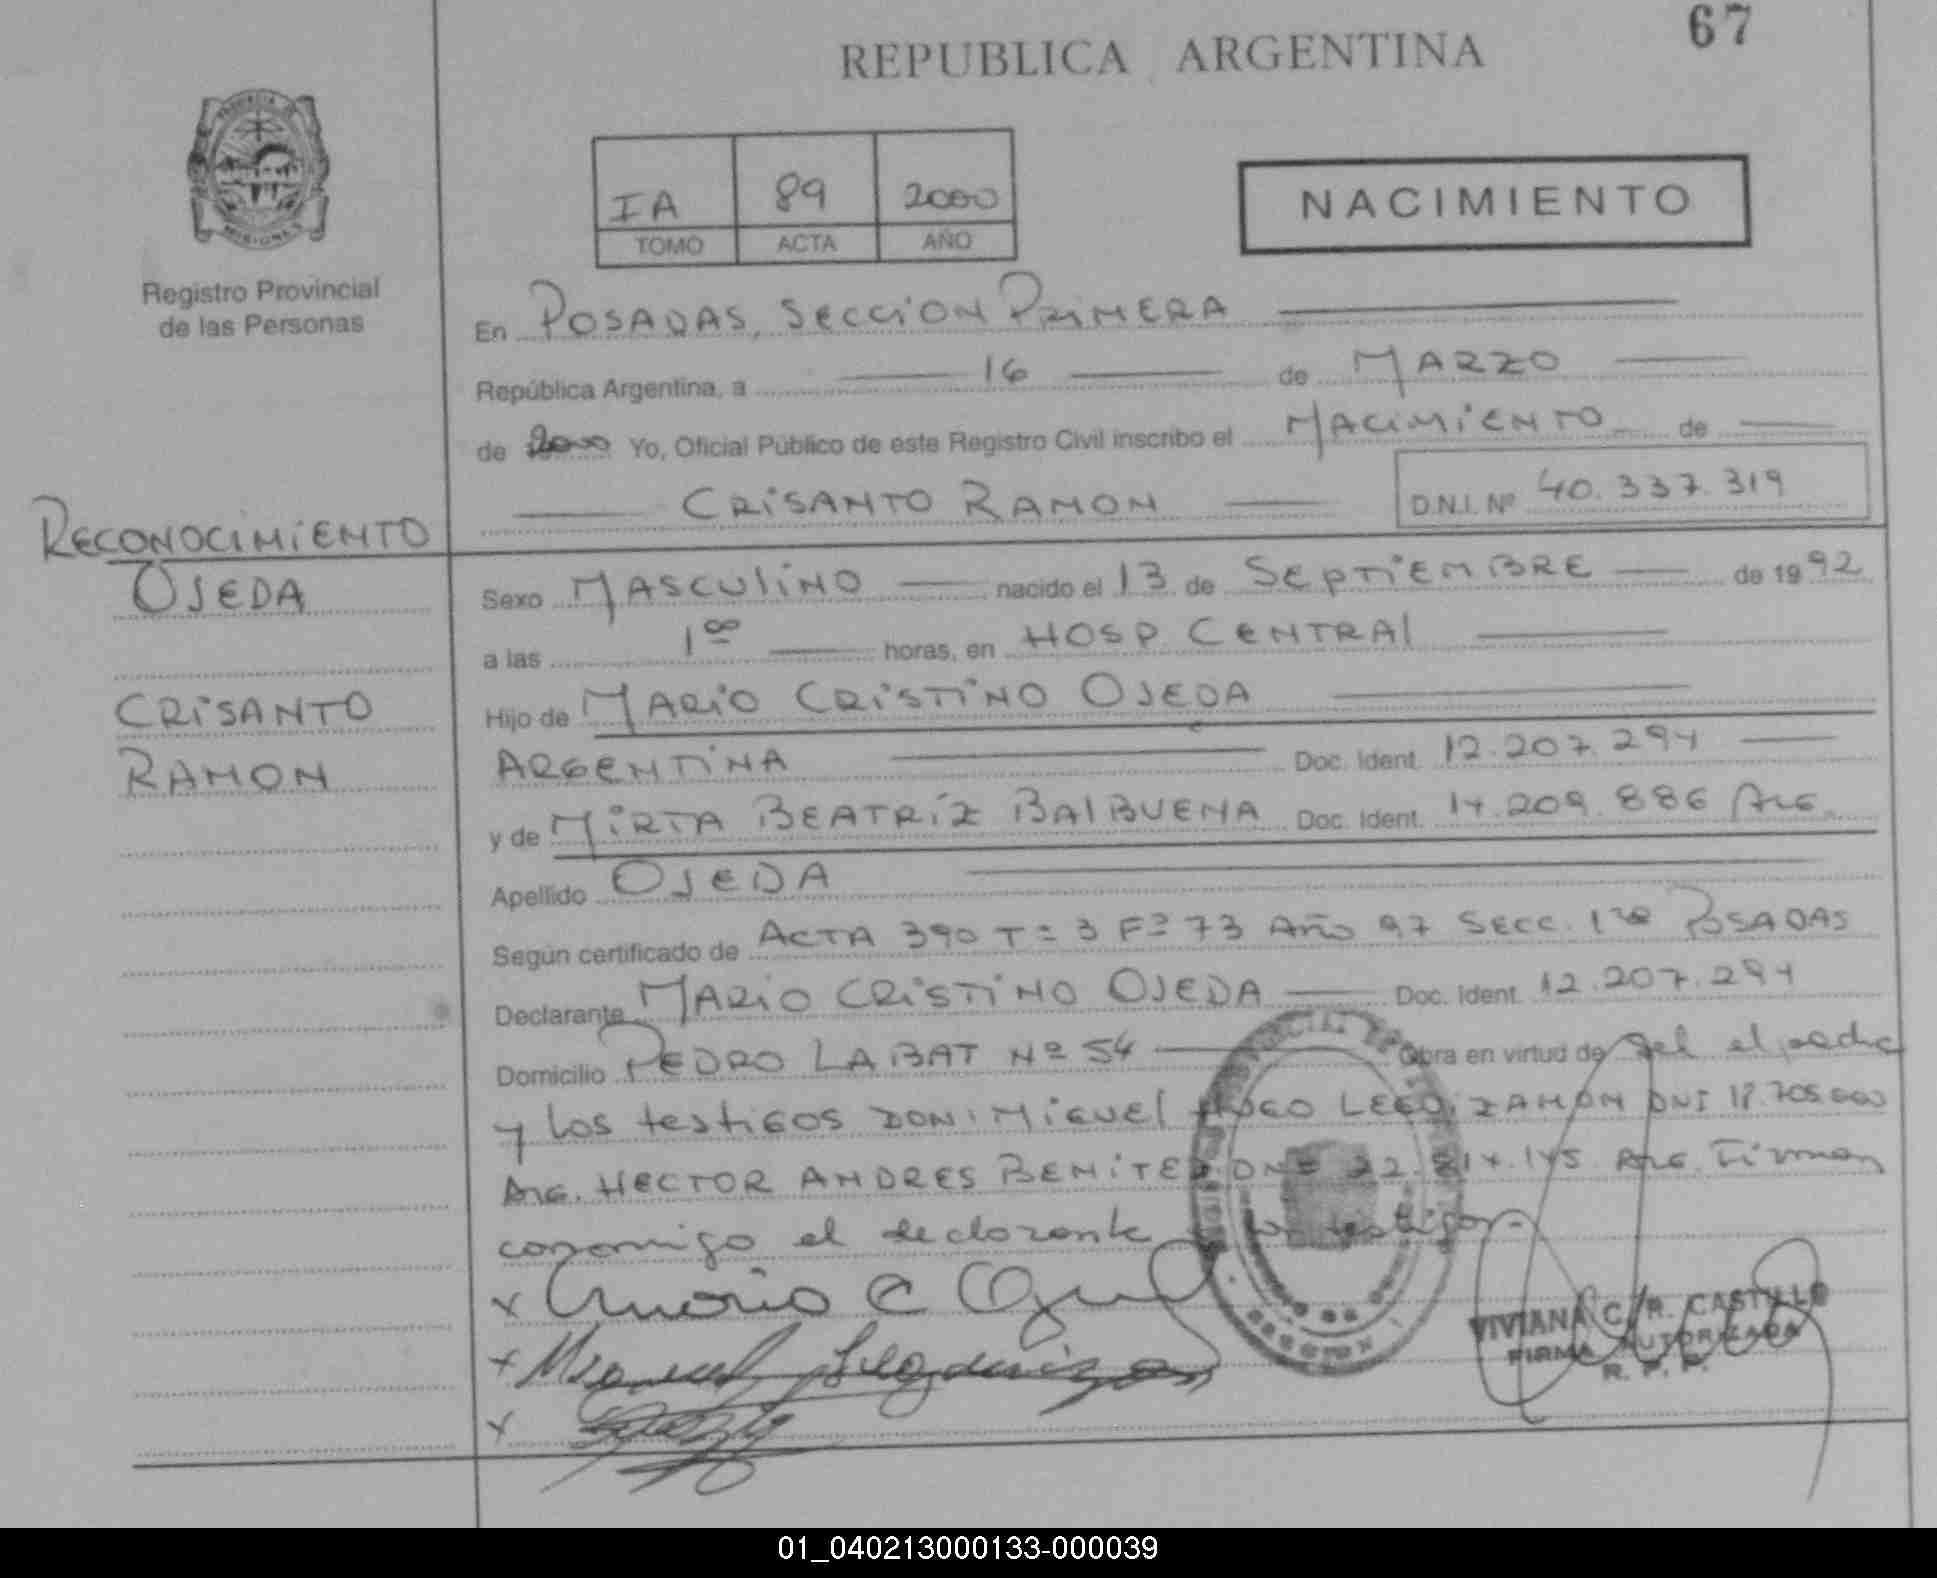 67
REPUBLICA ARGENTINA
IA 89 2000
TOMO ACTA AÑO
NACIMIENTO
PROVINCIA DE MISIONES
Registro Provincial
de las Personas
En POSADAS, SECCION PRIMERA
República Argentina, a 16 de MARZO
de 2000 Yo, Oficial Público de este Registro Civil inscribo el NACIMIENTO de
CRISANTO RAMON D.N.I. Nº 40.337.319
RECONOCIMIENTO
OJEDA
CRISANTO
RAMON
Sexo MASCULINO nacido el 13 de SEPTIEMBRE de 1992
a las 1⁰⁰ horas, en HOSP. CENTRAL
Hijo de MARIO CRISTINO OJEDA
ARGENTINA Doc. Ident. 12.207.294
y de MIRTA BEATRIZ BALBUENA Doc. Ident. 14.209.886 ARG.
Apellido OJEDA
Según certificado de ACTA 390 Tº 3 Fº 73 Año 97 SECC. 1ra POSADAS
Declarante MARIO CRISTINO OJEDA Doc. Ident. 12.207.294
Domicilio PEDRO LABAT Nº 54 Obra en virtud de ser el padre
y los testigos DON: MIGUEL HUGO LEGUIZAMON DNI
ARG. HECTOR ANDRES BENITEZ DNI ARG. Firman
conmigo el declarante y los testigos.-
x Mario C Ojeda
x Miguel Leguizamon
x
VIVIANA C. R. CASTILLO
FIRMA AUTORIZADA
R. P. P.
01_040213000133-000039